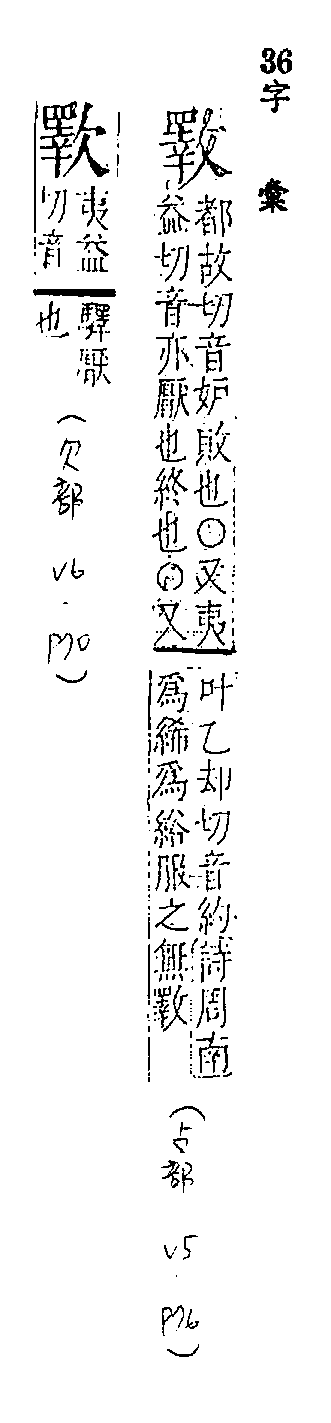 36
字彙
斁
都故切音妒敗也○又夷
益切音亦厭也終也○又
叶乙却切音約詩周南
爲絺爲綌服之無斁
(攴部 v5. p76)
歝
夷益
切音
驛厭
也
(欠部 v6. p70)